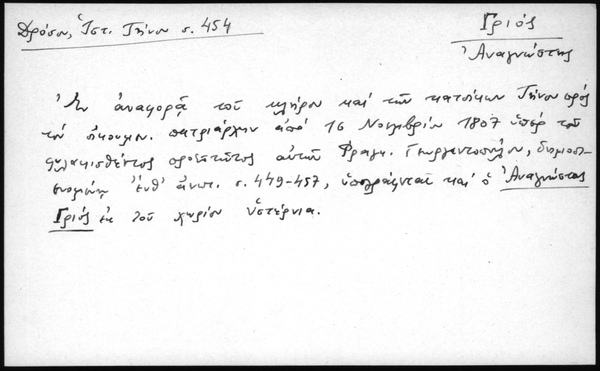 Δρόσου, Ἱστ. Τήνου σ. 454
Γριός
Ἀναγνώστης
Ἐν ἀναφορᾷ τοῦ κλήρου καὶ τῶν κατοίκων Τήνου πρὸς
τὸν οἰκουμ. πατριάρχην ἀπὸ 16 Νοεμβρίου 1807 ὑπὲρ τοῦ
φυλακισθέντος προεστῶτος αὐτῶν Φραγκ. Γεωργαντοπούλου, δημοσι-
ευομένῃ ἔνθ' ἀνωτ. σ. 449-457, ὑπογράφεται καὶ ὁ Ἀναγνώστης
Γριός ἐκ τοῦ χωρίου Ὑστέρνια.